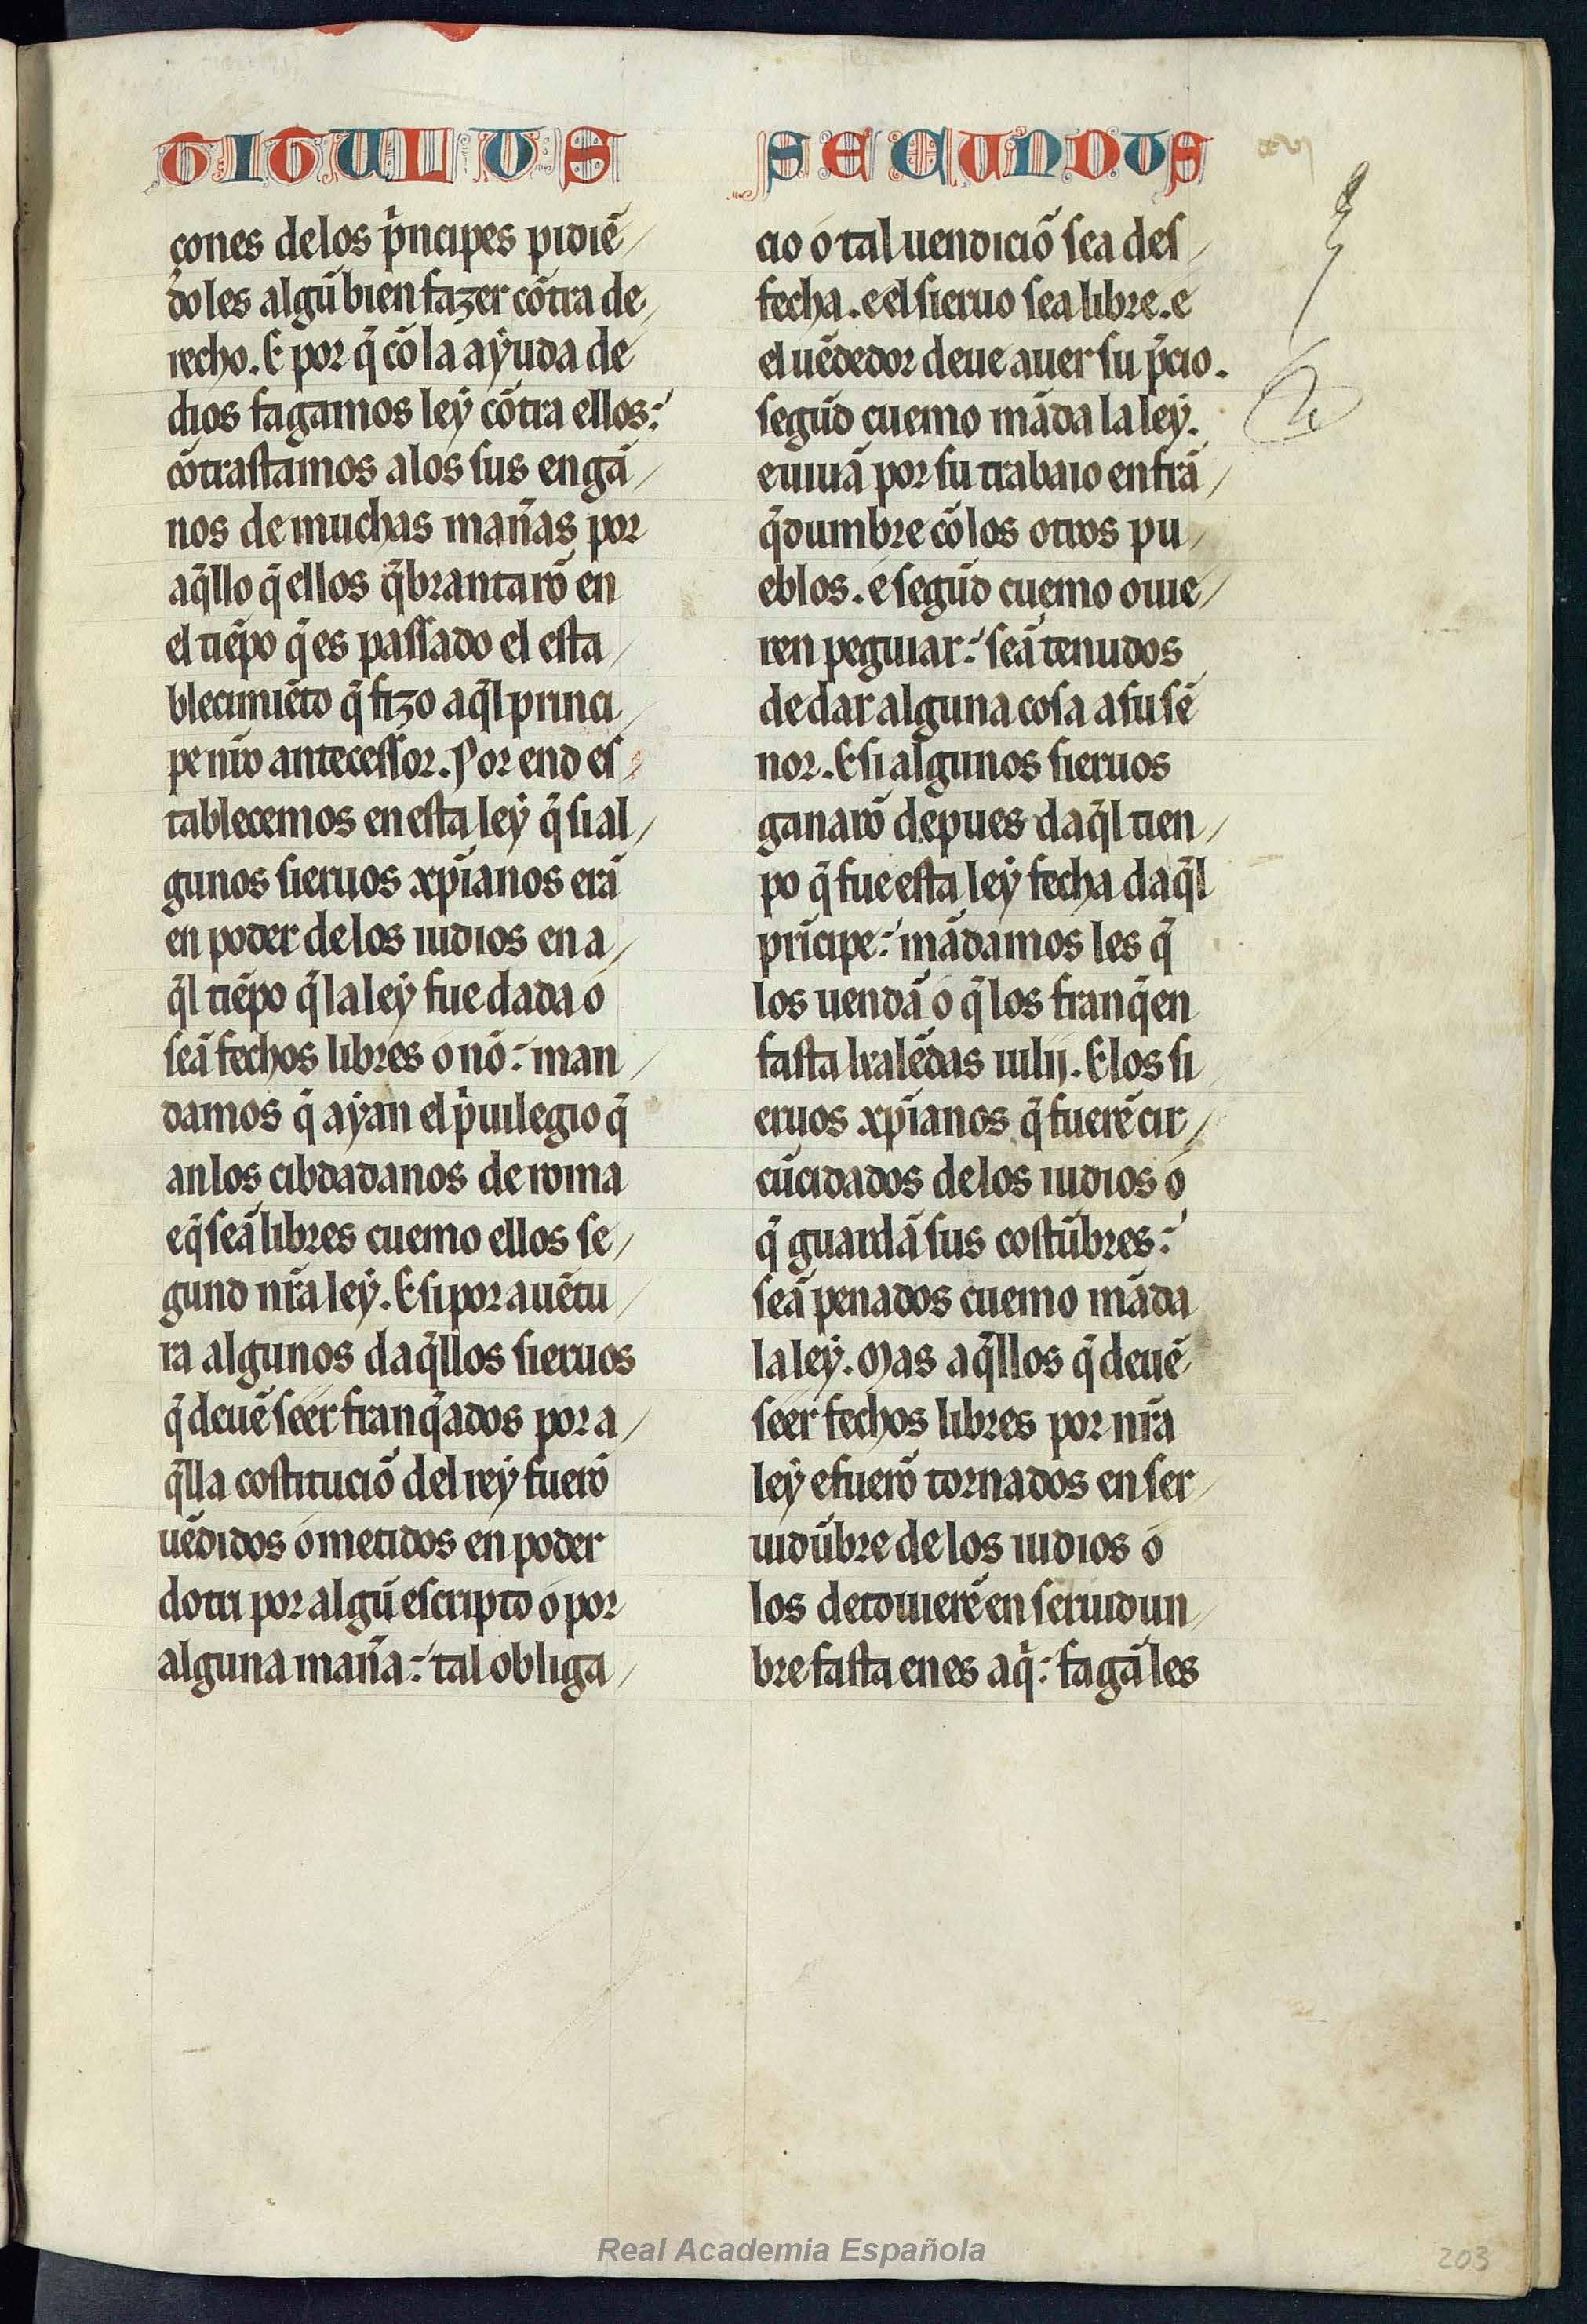 TITULUS
çones delos pͥncipes pidiẽ/
doles algũ bien fazer cõtra de/
recho. E por q̃ cõ la aẏuda de
dios fagamos leẏ cõtra ellos:
cõtraſtamos alos ſus engã/
nos de muchas mañas por
aq̃llo q̃ ellos q̃brantarõ en
el tiẽpo q̃ es paſſado el eſta/
blecimiẽto q̃ fizo aq̃l princi/
pe nr̃o anteceſſor. Por end eſ/
tablecemos en eſta leẏ q̃ ſi al/
gunos ſieruos xp̃ianos erã
en poder delos iudios en a/
q̃l tiẽpo q̃ la leẏ fue dada o
ſeã fechos libres o nõ: man/
damos q̃ aẏan el pͥuilegio q̃
an los cibdadanos de roma
e q̃ ſeã libres cuemo ellos ſe/
gund nr̃a leẏ. E ſi por auẽtu/
ra algunos daq̃llos ſieruos
q̃ deuẽ ſeer franq̃ados por a/
q̃lla coſtituciõ del reẏ fuerõ
uẽdidos o metidos en poder
dotri por algũ eſcripto o por
alguna mañ̃a: tal obliga/
SECUNDUS
cio o tal uendiciõ ſea deſ/
fecha. e el ſieruo ſea libre. e
el uẽdedor deue auer ſu p̃cio.
ſegũd cuemo mãda la leẏ.
e uiuã por ſu trabaio en frã/
q̃dumbre cõ los otros pu/
eblos. e ſegũd cuemo ouie/
ren peguiar: ſeã tenudos
de dar alguna coſa a ſu ſẽ
nor. E ſi algunos ſieruos
ganarõ depues daq̃l tien/
po q̃ fue eſta leẏ fecha daq̃l
prĩcipe: mãdamos les q̃
los uendã o q̃ los franq̃en
faſta kalẽdas iulij. E los ſi
eruos xp̃ianos q̃ fuerẽ cir/
cũcidados delos iudios o
q̃ guardã ſus coſtũbres:
ſeã penados cuemo mãda
la leẏ. Mas aq̃llos q̃ deuẽ
ſeer fechos libres por nr̃a
leẏ e fuerõ tornados en ſer/
uidũbre de los iudios o
los detouierẽ en ſeruidun/
bre faſta en es aq̃: fagã les
Real Academia Española
203